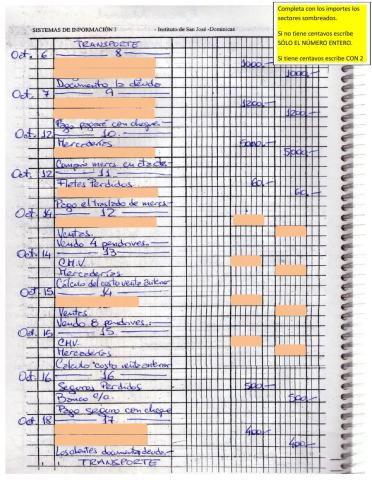 Completa con los importes los
sectores sombreados.
Si no tiene centavos escribe
SÓLO EL NÚMERO ENTERO.
Si tiene centavos escribe CON 2
SISTEMAS DE INFORMACIÓN I - Instituto de San José -Dominicas
TRANSPORTE
Oct. 6 8
1000.-
1000.-
Documento la deuda
Oct. 7 9
1200.-
1200.-
Pago pagaré con cheque
Oct. 12 10.-
Mercaderías 5000.-
5000.-
Compro mercs en cta cte.
Oct. 12 11.-
Fletes Perdidos. 60.-
60.-
Pago el traslado de mercs.
Oct. 14 12
Ventas.
Vendo 4 pendrives.
Oct. 14 13
C.M.V.
Mercaderías
Cálculo del costo venta anterior
Oct. 15 14
Ventas
Vendo 8 pendrives.
Oct. 15 15
CMV.
Mercaderías
Calculo costo venta anterior
Oct. 16 16
Seguros Perdidos 500.-
Banco c/c. 500.-
Pago seguro con cheque
Oct. 18 17
400.-
400.-
Los clientes documentan deuda.
TRANSPORTE